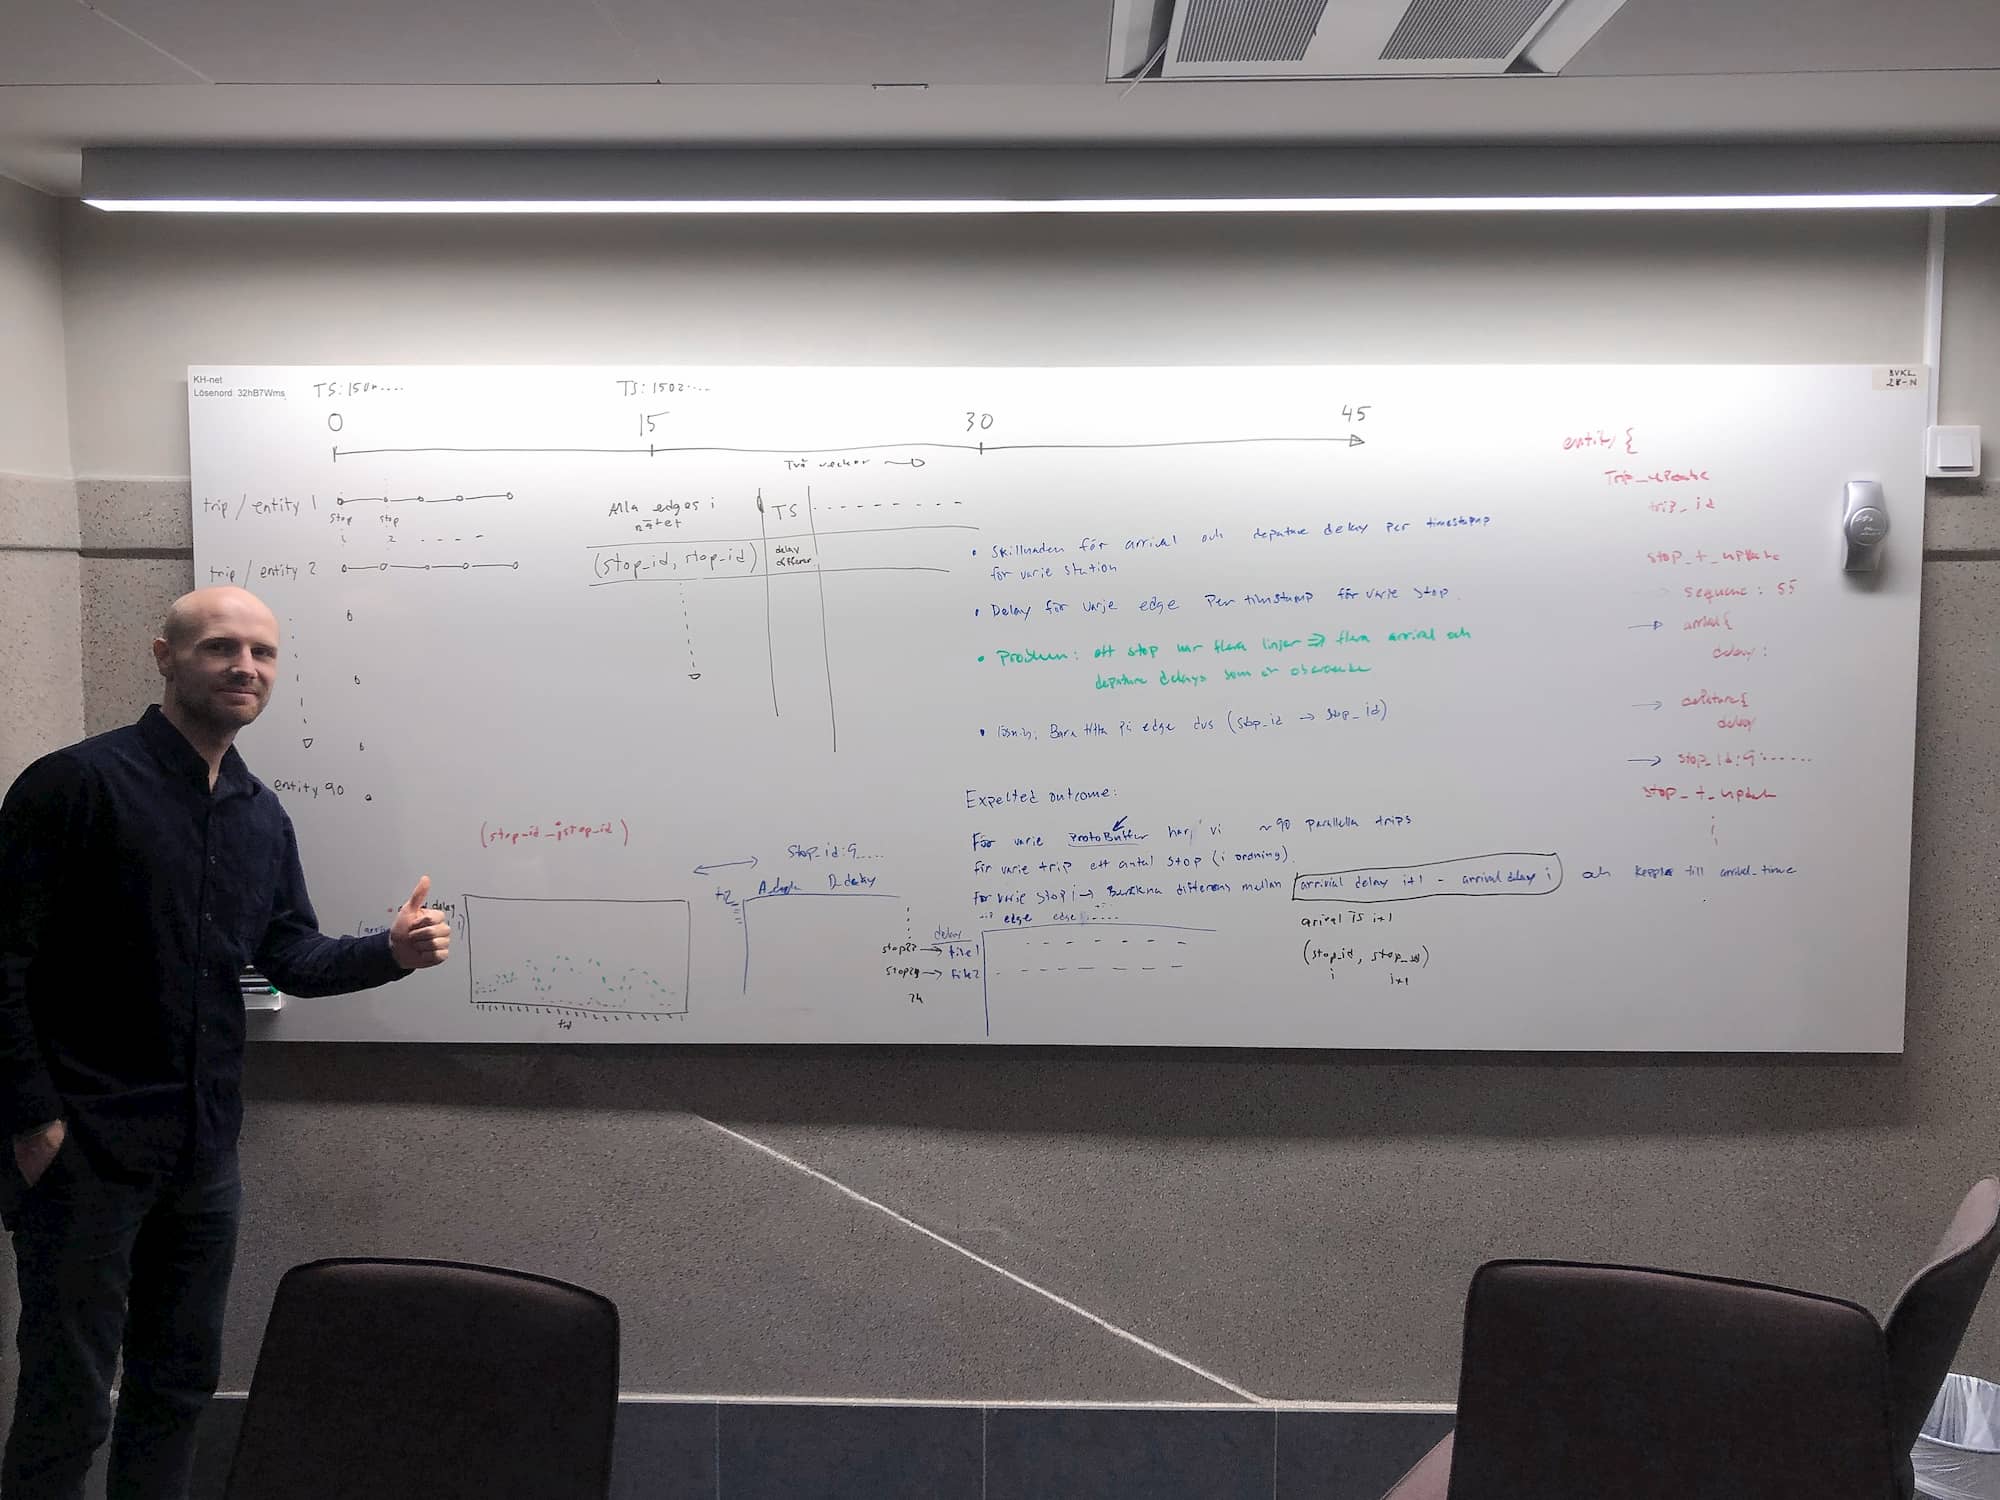 KH-net
Lösenord: 32hB7Wms
TS:150....
TS:1502....
0
15
30
45
Två veckor
BVKL
28-N
trip / entity 1
stop stop
1 2
trip / entity 2
entity 90
Alla edges i
nätet
TS
(stop_id, stop_id)
delay
differen
• Skillnaden för arrival och depature delay per timestamp
för varje station
• Delay för varje edge per timstamp för varje stop.
• Problem: ett stop har flera linjer => flera arrival och
depature delays som är oberoende
• lösnin; Bara titta på edge dvs (stop_id → stop_id)
Expected outcome:
För varje ProtoBuffer har vi ~90 parallella trips
för varje trip ett antal stop (i ordning).
för varje stop i → Beräkna differens mellan arrivial delay i+1 - arrival delay i och koppla till arrival_time
edge edge ....
arival TS i+1
(stop_id, stop_id)
i i+1
delay
stop23 → file1
stop24 → file2
24
(stop_id_i, stop_id)
delay
stop_id:9....
A_delay D_delay
entity {
Trip_update
trip_id
stop_t_update
sequene: 55
→ arrival{
delay:
→ depature{
delay
→ stop_id:9......
stop_t_update